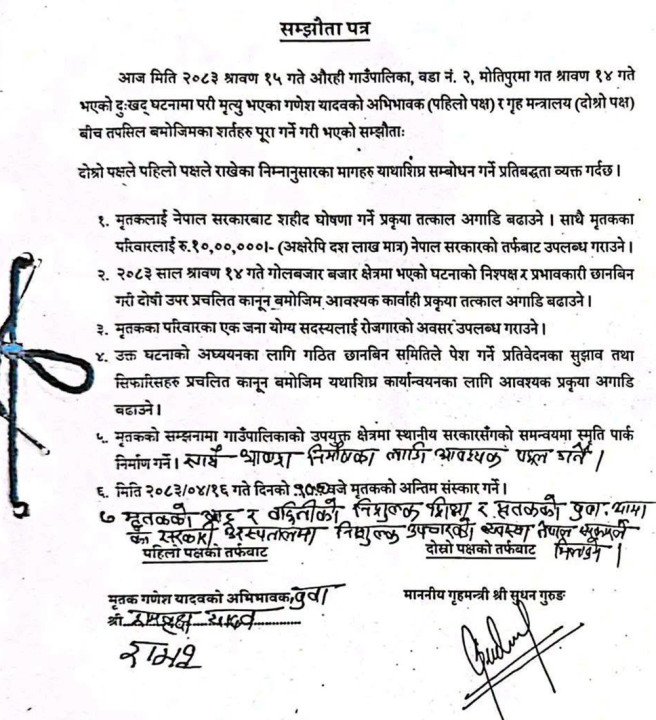 सम्झौता पत्र
आज मिति २०८३ श्रावण १५ गते औरही गाउँपालिका, वडा नं. २, मोतिपुरमा गत श्रावण १४ गते
भएको दुःखद् घटनामा परी मृत्यु भएका गणेश यादवको अभिभावक (पहिलो पक्ष) र गृह मन्त्रालय (दोश्रो पक्ष)
बीच तपसिल बमोजिमका शर्तहरु पूरा गर्ने गरी भएको सम्झौताः
दोश्रो पक्षले पहिलो पक्षले राखेका निम्नानुसारका मागहरु यथाशिघ्र सम्बोधन गर्ने प्रतिबद्धता व्यक्त गर्दछ ।
१. मृतकलाई नेपाल सरकारबाट शहीद घोषणा गर्ने प्रकृया तत्काल अगाडि बढाउने । साथै मृतकका
परिवारलाई रु.१०,००,०००।- (अक्षरेपि दश लाख मात्र) नेपाल सरकारको तर्फबाट उपलब्ध गराउने ।
२. २०८३ साल श्रावण १४ गते गोलबजार बजार क्षेत्रमा भएको घटनाको निश्पक्ष र प्रभावकारी छानबिन
गरी दोषी उपर प्रचलित कानून बमोजिम आवश्यक कार्वाही प्रकृया तत्काल अगाडि बढाउने ।
३. मृतकका परिवारका एक जना योग्य सदस्यलाई रोजगारको अवसर उपलब्ध गराउने ।
४. उक्त घटनाको अध्ययनका लागि गठित छानबिन समितिले पेश गर्ने प्रतिवेदनका सुझाव तथा
सिफारिसहरु प्रचलित कानून बमोजिम यथाशिघ्र कार्यान्वयनका लागि आवश्यक प्रकृया अगाडि
बढाउने ।
५. मृतकको सम्झनामा गाउँपालिकाको उपयुक्त क्षेत्रमा स्थानीय सरकारसँगको समन्वयमा स्मृति पार्क
निर्माण गर्ने । साथै निर्माणका लागि आवश्यक पहल गर्ने ।
६. मिति २०८३/०४/१६ गते दिनको बजे मृतकको अन्तिम संस्कार गर्ने ।
७ मृतकको र बहिनीको निशुल्क शिक्षा र मृतकको बुवा, आमा
सरकारी अस्पतालमा निशुल्क उपचारको व्यवस्था नेपाल सरकारले
मिलाउने ।
पहिलो पक्षको तर्फबाट दोस्रो पक्षको तर्फबाट
मृतक गणेश यादवको अभिभावक, बुवा माननीय गृहमन्त्री श्री सुधन गुरुङ
श्री यादव